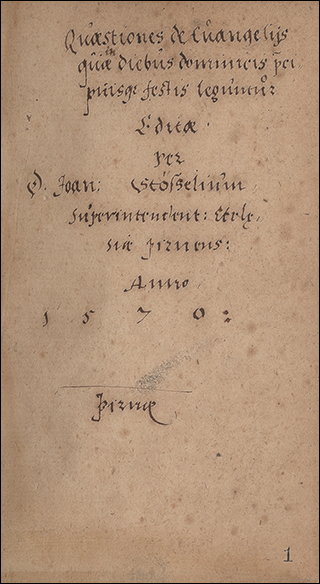 Quæstiones de Euangelijs
in
quæ diebus dominicis præci
puisq; festis leguntur
Editæ
per
D. Joan: Stösselium
superintendent: Eccle,
siæ pirnens:
Anno
1 5 7 0 :
pirnæ
1